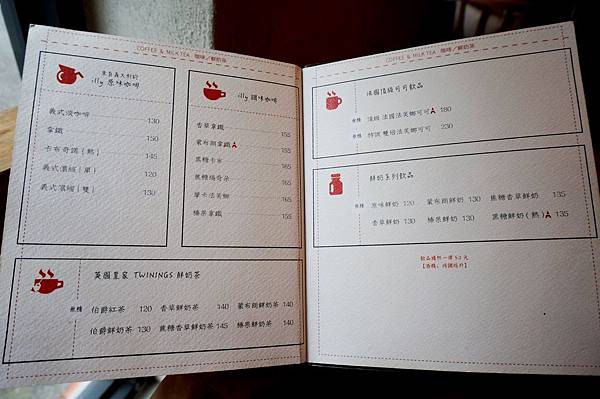 COFFEE & MILK TEA 咖啡／鮮奶茶
來自義大利的
illy 原味咖啡
義式淡咖啡 130
拿鐵 150
卡布奇諾(熱) 145
義式濃縮(單) 120
義式濃縮(雙) 130
illy 調味咖啡
香草拿鐵 155
蒙布朗拿鐵 155
焦糖卡布 165
焦糖瑪奇朵 165
摩卡法芙娜 165
榛果拿鐵 165
英國皇家 TWININGS 鮮奶茶
無糖 伯爵紅茶 120 香草鮮奶茶 140 蒙布朗鮮奶茶 140
伯爵鮮奶茶 130 焦糖香草鮮奶茶 145 榛果鮮奶茶 140
COFFEE & MILK TEA 咖啡／鮮奶茶
法國頂級可可飲品
無糖 頂級 法國法芙娜可可 180
無糖 特調 雙倍法芙娜可可 230
鮮奶系列飲品
無糖 原味鮮奶 120 蒙布朗鮮奶 130 焦糖香草鮮奶 130
香草鮮奶 130 榛果鮮奶 130 黑糖鮮奶(熱) 135
飲品續杯一律50元